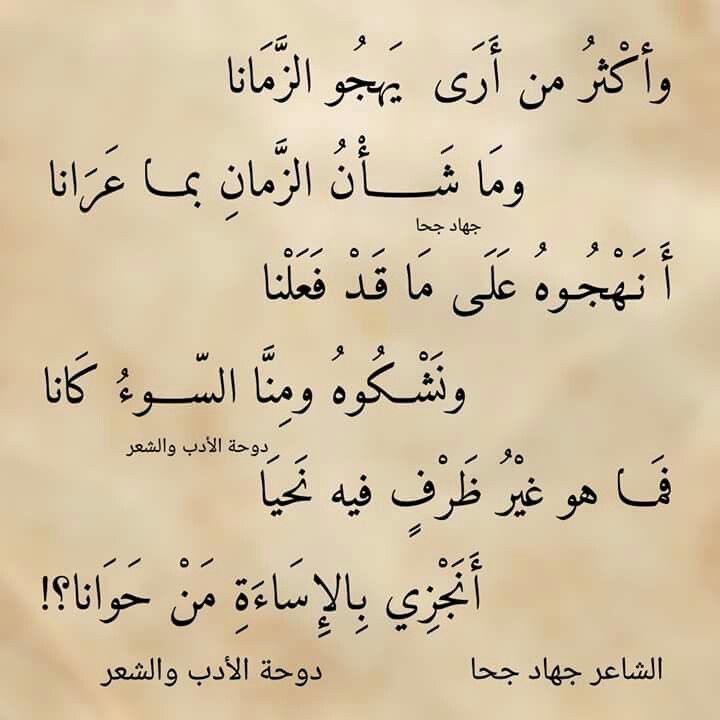 وأكْثرُ من أَرَى يَهجُو الزَّمَانا
ومَا شَـــأْنُ الزَّمانِ بمـا عَرَانا
جهاد جحا
أَ نَـهْجُـوهُ عَلَـى مَا قَـدْ فَعَلْنا
ونَشْـكُوهُ ومِنَّا السّـــوءُ كَانا
دوحة الأدب والشعر
فمَـا هو غيْرُ ظَرْفٍ فيه نَحيَا
أَنَجْزِي بِالإِسَاءَةِ مَنْ حَوَانا؟!
الشاعر جهاد جحا دوحة الأدب والشعر